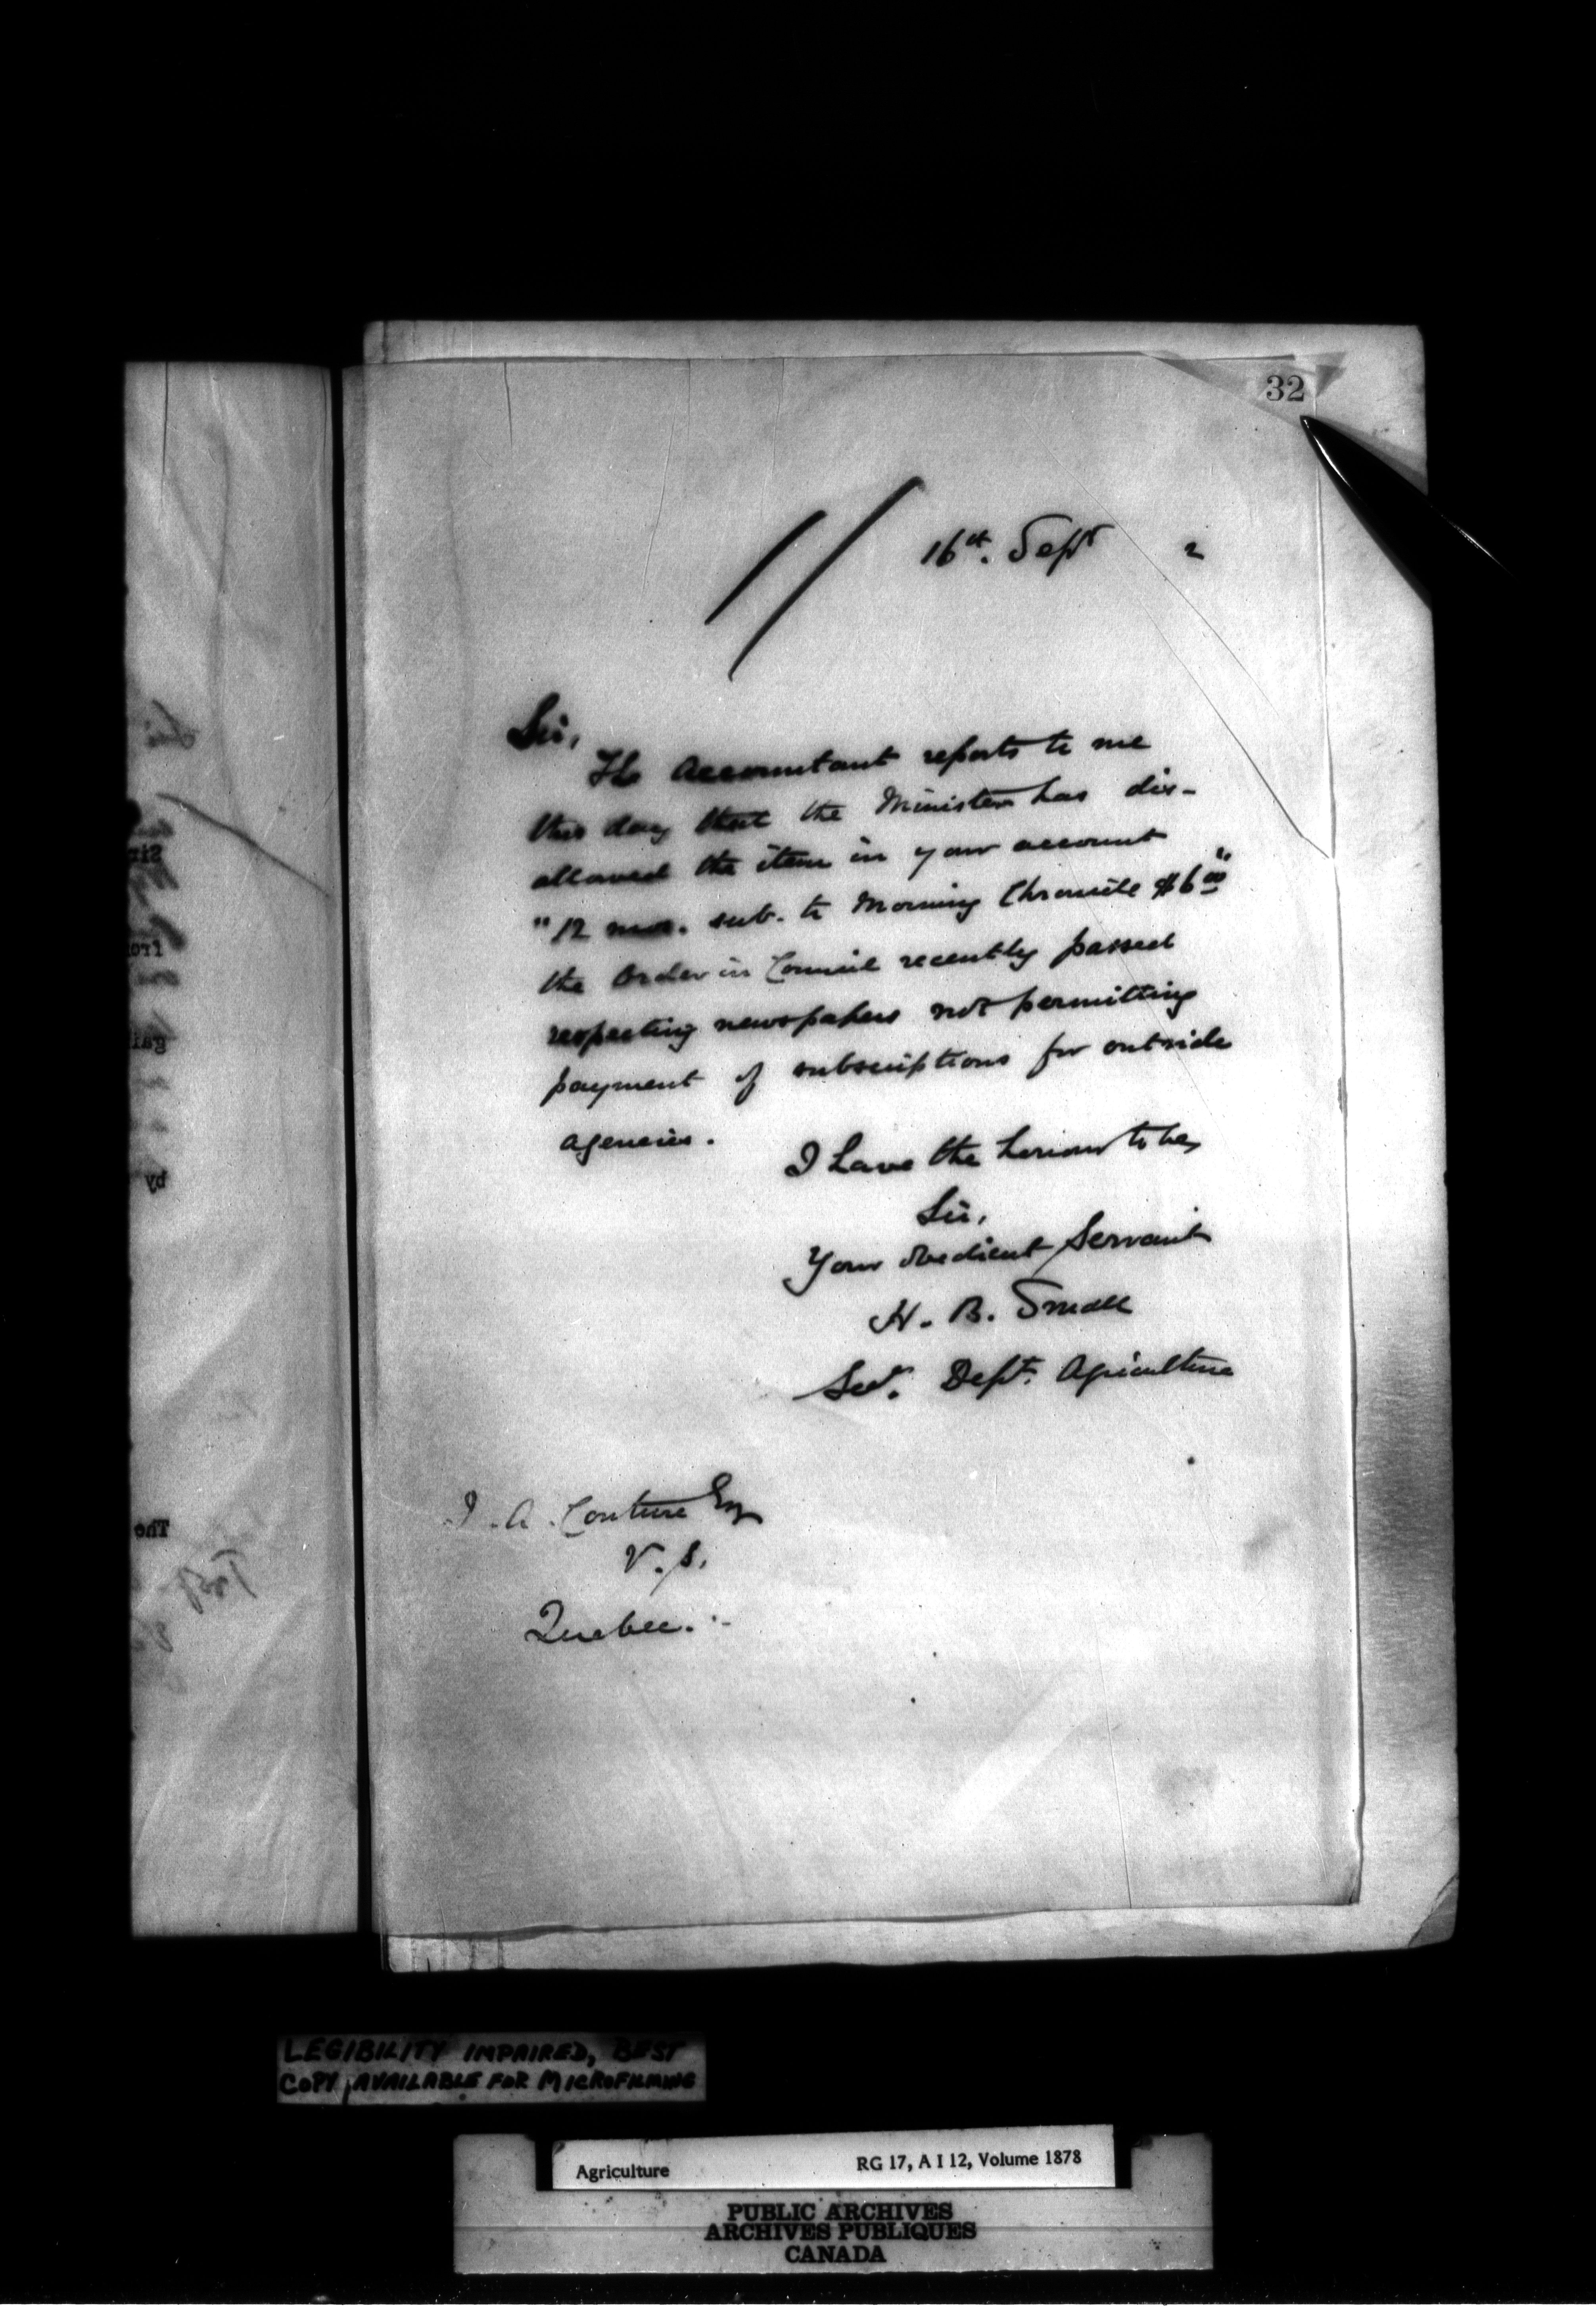 32
16th. Sept 2
Sir,
The Accountant reports to me
this day that the Minister has dis-
allowed the item in your account
"12 mos. sub. to Morning Chronicle $6.00"
the Order in Council recently passed
respecting newspapers not permitting
payment of subscriptions for outside
agencies.
I have the honour to be,
Sir,
Your obedient Servant
H. B. Small
Secy. Dept. Agriculture
J. A. Couture Esq
V. S.
Quebec.
LEGIBILITY IMPAIRED, BEST
COPY AVAILABLE FOR MICROFILMING
Agriculture RG 17, A I 12, Volume 1878
PUBLIC ARCHIVES
ARCHIVES PUBLIQUES
CANADA